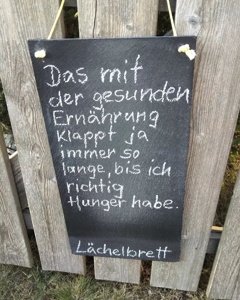 Das mit
der gesunden
Ernährung
klappt ja
immer so
lange, bis ich
richtig
Hunger habe.
Lächelbrett